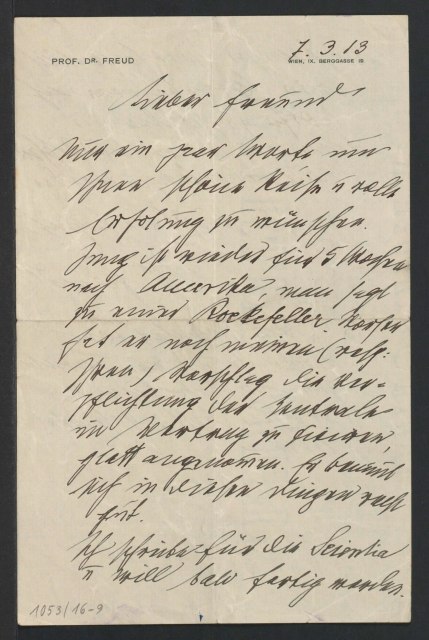 7. 3. 13
PROF. DR. FREUD
WIEN, IX. BERGGASSE 19
Lieber Freund
Nur ein paar Worte um
Ihnen schöne Reise u volle
Erholung zu wünschen.
Jung ist wieder für 5 Wochen
nach Amerika, man sagt
zu einer Rockefeller. Vorher
hat er noch meinen (resp.
Ihren) Vorschlag die Ver-
pflichtung der Zentrale
im Vertrag zu fixieren,
glatt angenommen. Er benimmt
sich in diesen Dingen recht
gut.
Ich schreibe für die Scientia
u will bald fertig werden.
1053/16-9